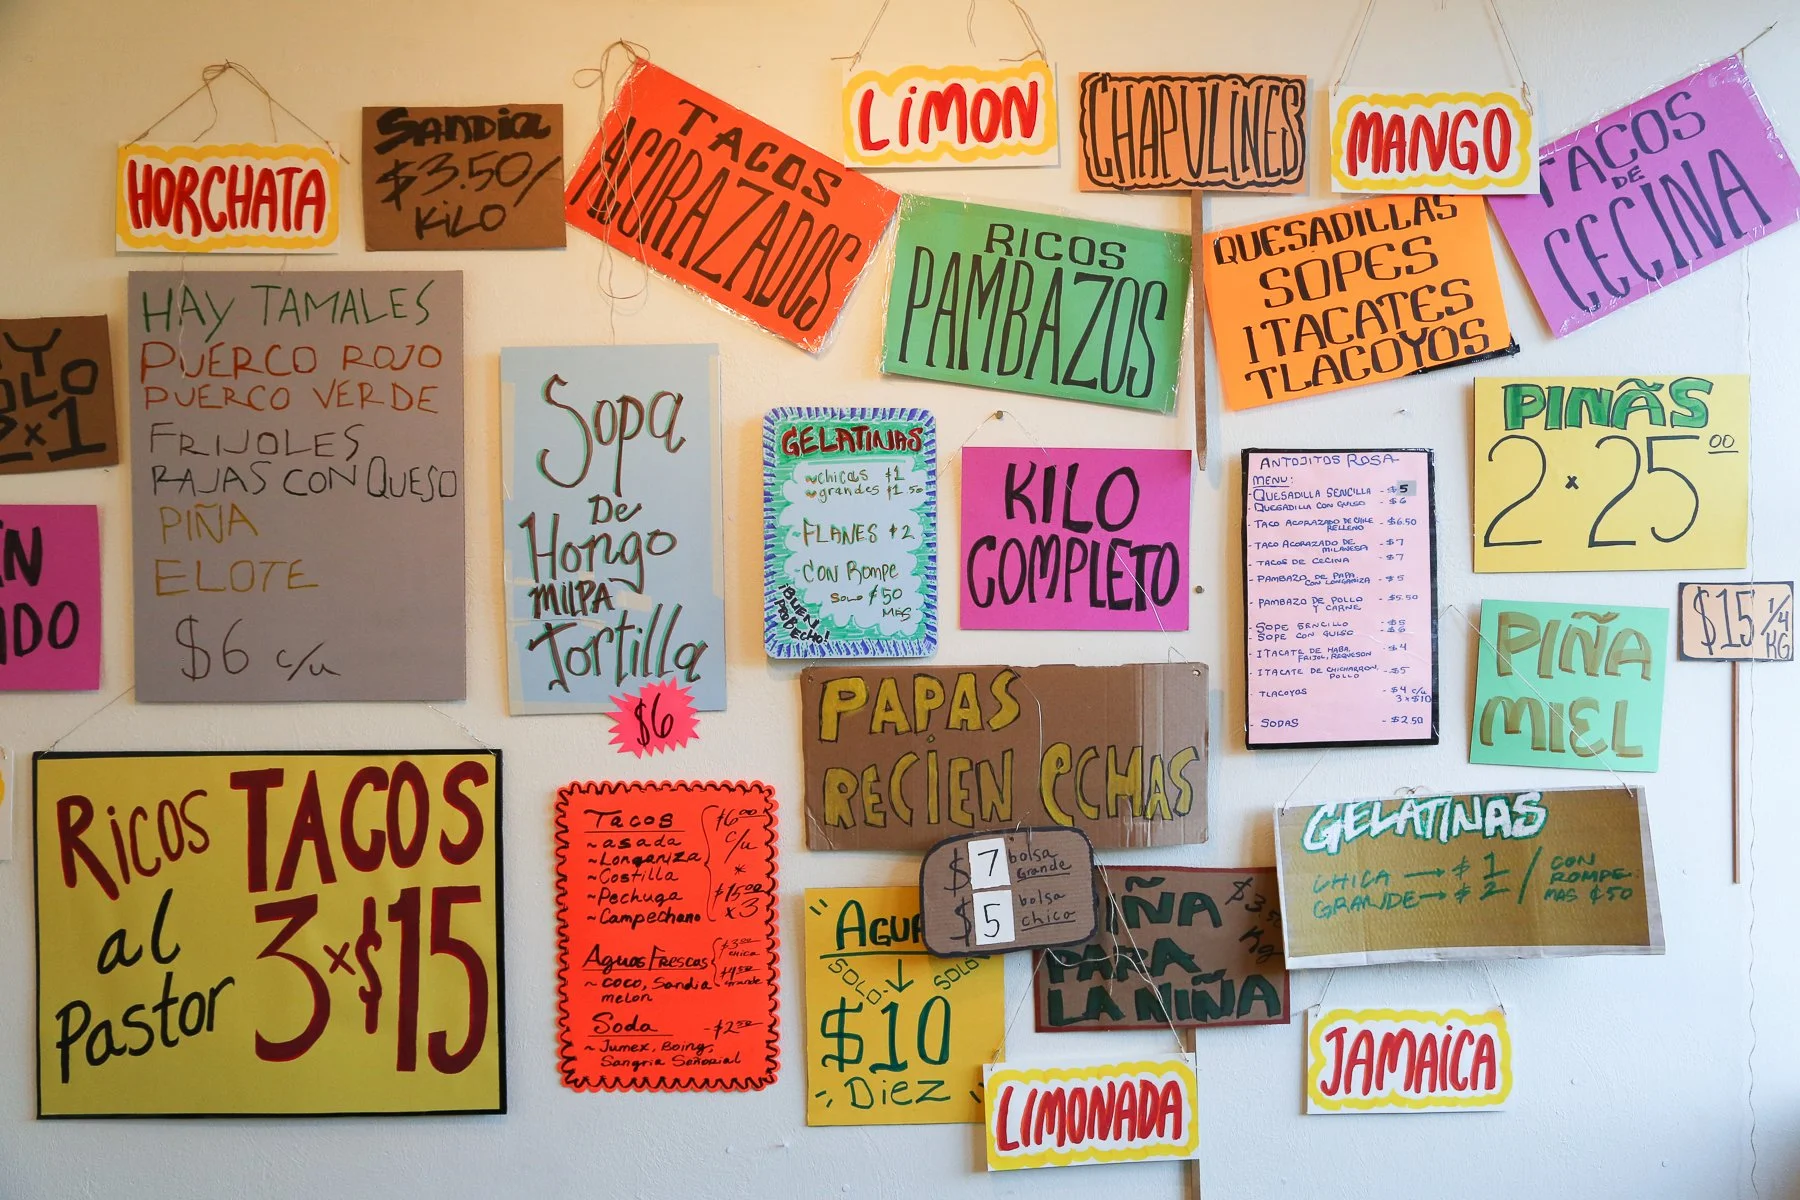 HORCHATA
SANDIA
$3.50/
KiLO
TACOS
ACORAZADOS
LiMON
CHAPULINES
MANGO
TACOS
DE
CECINA
RICOS
PAMBAZOS
QUESADILLAS
SOPES
ITACATES
TLACOYOS
Y
OLO
2x1
HAY TAMALES
PUERCO ROJO
PUERCO VERDE
FRIJOLES
RAJAS CON QUESO
PIÑA
ELOTE
$6 c/u
Sopa
De
Hongo
MILPA
Tortilla
$6
GELATINAS
~chicas $1
~grandes $1.50
~FLANES $2
~CON Rompe
SOLO $.50
MAS
¡BUEN
PROBECHO!
KILO
COMPLETO
ANTOJITOS ROSA
MENU:
- QUESADILLA SENCILLA - $5
- QUESADILLA CON GUISO - $6
- TACO ACORAZADO DE CHILE - $6.50
RELLENO
- TACO ACORAZADO DE - $7
MILANESA
- TACOS DE CECINA - $7
- PAMBAZO DE PAPA - $5
CON LONGANIZA
- PAMBAZO DE POLLO - $5.50
Y CARNE
- SOPE SENCILLO - $5
- SOPE CON GUISO - $6
- ITACATE DE HABA, - $4
FRIJOL, REQUESON
- ITACATE DE CHICHARRON, - $5
POLLO
- TLACOYOS - $4 c/u
3x$10
- SODAS - $2.50
PIÑAS
2x25.00
N
IDO
PIÑA
MIEL
$15 1/4
KG
RiCOS TACOS
al
Pastor
3x$15
Tacos
~asada
~Longaniza
~Costilla
~Pechuga
~Campechano
$6.00
c/u
*
$15.00
x3
Aguas Frescas
~coco, Sandia
melon
$3.00
chica
$4.00
grande
Soda -$2.50
~Jumex, Boing,
Sangria Señorial
PAPAS
RECIEN eCHAS
$7 bolsa
Grande
$5 bolsa
chica
AGUA
SOLO SOLO
$10
DiEZ
PIÑA
PARA
LA NIÑA
$3.50
Kg
GELATINAS
CHICA → $1
GRANDE → $2
/ CON
ROMPE:
MAS ¢50
LIMONADA
JAMAICA